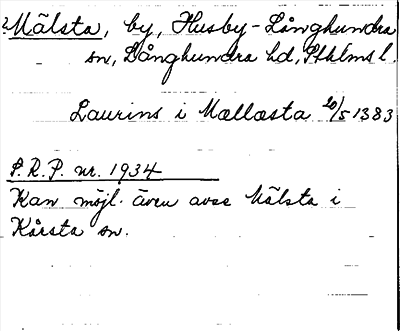 2 Mälsta, by, Husby-Långhundra
sn, Långhundra hd, Sthlms l.
Laurins i Mællæsta 20/5 1383
S.R.P. nr. 1934
Kan möjl. även avse Mälsta i
Kårsta sn.